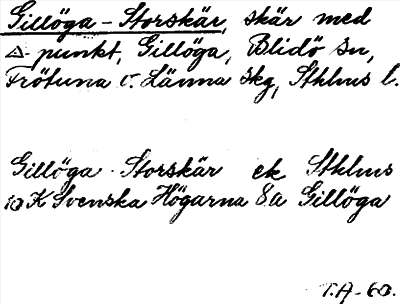 Gillöga - Storskär, skär med
△ punkt, Gillöga, Blidö sn,
Frötuna o. Länna skg, Sthlms l.
Gillöga Storskär ek Sthlms
10 K Svenska Högarna 8a Gillöga
T.A-60.